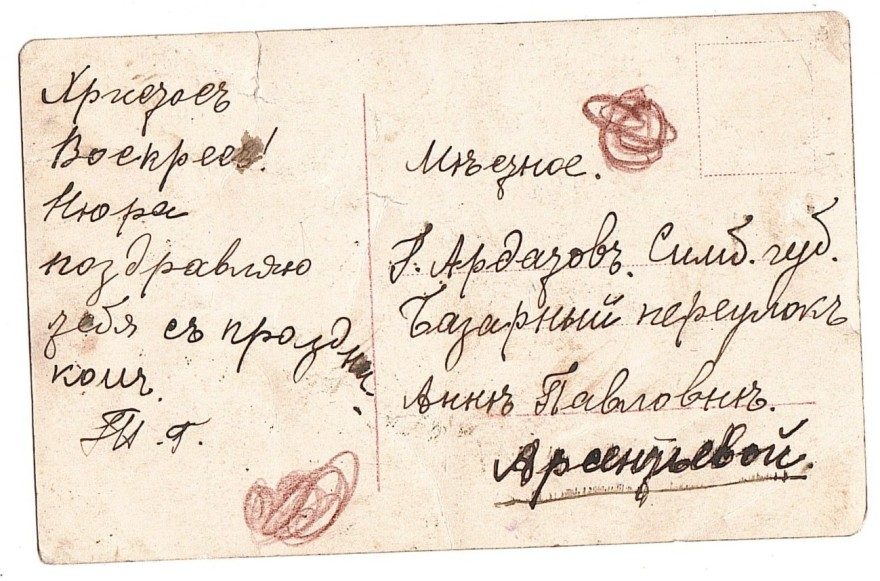 Христосъ
Воскресъ!
Нюра
поздравляю
тебя съ праздни-
комъ.
Мѣстное.
Г. Ардатовъ. Симб. губ.
Базарный переулокъ
Аннѣ Павловнѣ.
Арсентьевой.